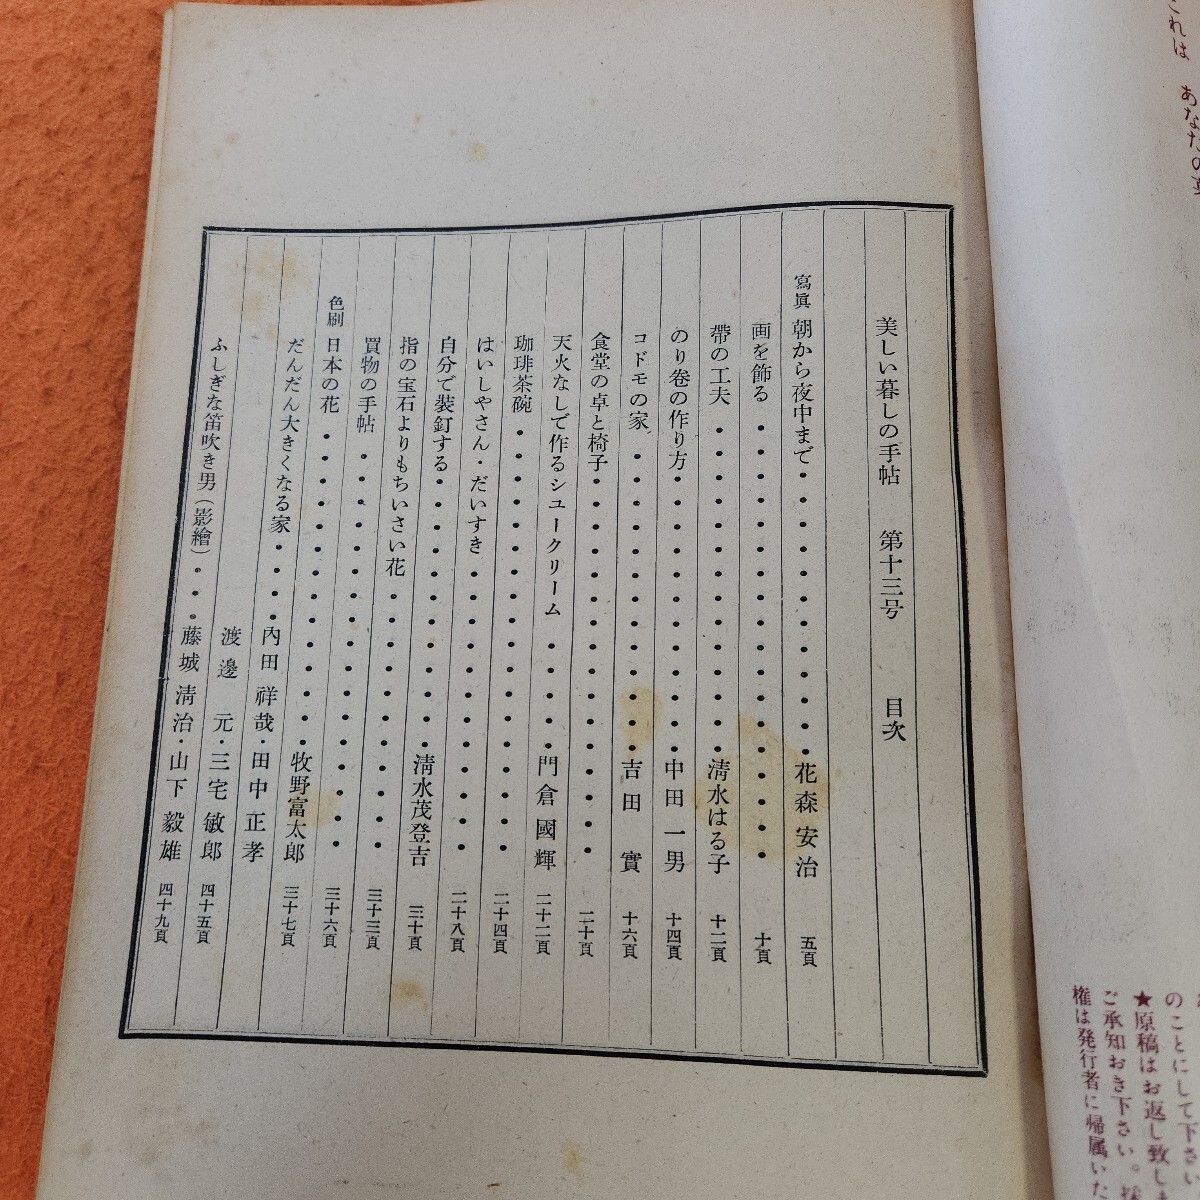 これは あなたの
のことにして下さい
★原稿はお返し致しま
ご承知おき下さい。
権は発行者に帰属いた
美しい暮しの手帖 第十三号 目次
寫眞 朝から夜中まで・・・・・・・・・・・・花森安治 五頁
画を飾る・・・・・・・・・・・・・・・・・・十頁
帶の工夫・・・・・・・・・・・・・・清水はる子 十二頁
のり巻の作り方・・・・・・・・・・・・中田一男 十四頁
コドモの家・・・・・・・・・・・・・吉田實 十六頁
食堂の卓と椅子・・・・・・・・・・・・・・・・二十頁
天火なしで作るシユークリーム・・・・・門倉國輝 二十二頁
珈琲茶碗・・・・・・・・・・・・・・・・・・二十四頁
はいしやさん・だいすき・・・・・・・・・・・・・二十八頁
自分で装釘する・・・・・・・・・・・・清水茂登吉 三十頁
指の宝石よりもちいさい花・・・・・・・・・・・三十三頁
買物の手帖・・・・・・・・・・・・・・・・・三十六頁
色刷 日本の花・・・・・・・・・・・・・・牧野富太郎 三十七頁
だんだん大きくなる家・・・・內田祥哉・田中正孝
渡邊元・三宅敏郎 四十五頁
ふしぎな笛吹き男（影繪）・・・藤城淸治・山下毅雄 四十九頁